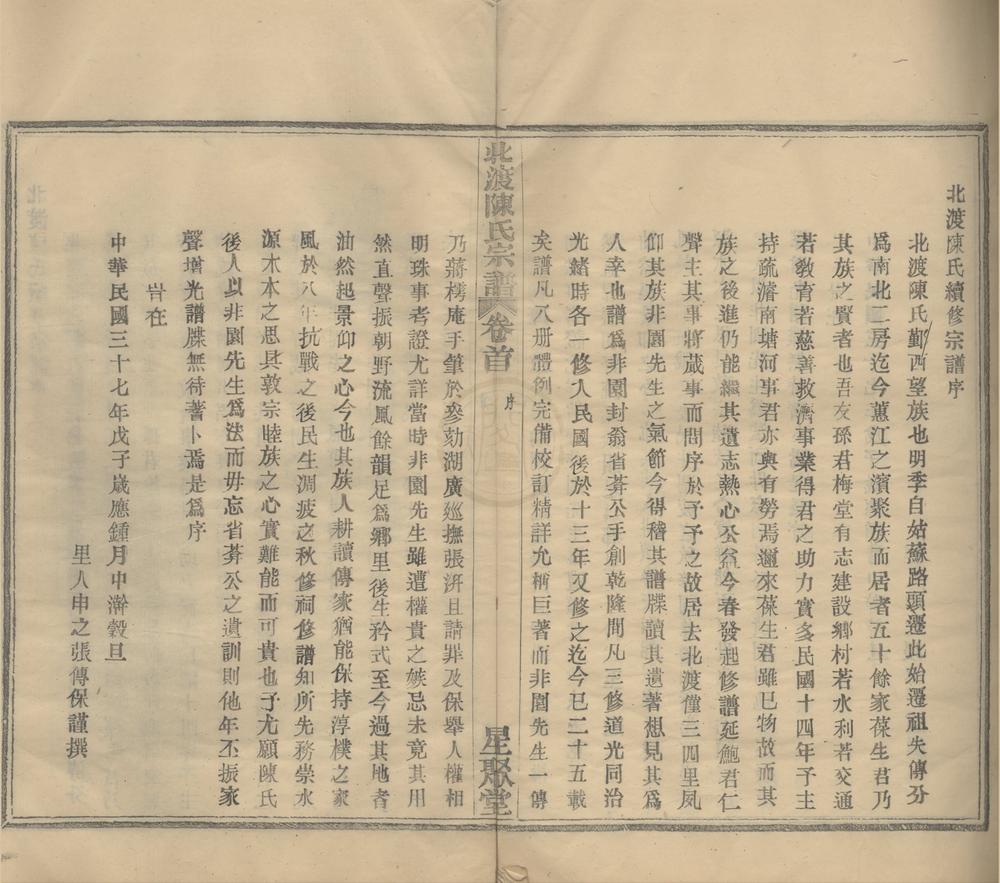 北渡陳氏續修宗譜序
北渡陳氏鄞西望族也明季自姑蘇路頭遷此始遷祖失傳分
爲南北二房迄今蕙江之濱聚族而居者五十餘家葆生君乃
其族之賢者也吾友孫君梅堂有志建設鄉村若水利若交通
若敎育若慈善救濟事業得君之助力實多民國十四年予主
持疏濬南塘河事君亦與有勞焉邇來葆生君雖已物故而其
族之後進仍能繼其遺志熱心公益今春發起修譜延鮑君仁
聲主其事將蕆事而問序於予予之故居去北渡僅三四里夙
仰其族非園先生之氣節今得稽其譜牒讀其遺著想見其爲
人幸也譜爲非園封翁省莽公手創乾隆間凡三修道光同治
光緒時各一修入民國後於十三年又修之迄今已二十五載
矣譜凡八册體例完備校訂精詳尤稱巨著而非園先生一傳
北渡陳氏宗譜
卷首
序
星聚堂
乃蔣樗庵手筆於叅劾湖廣廵撫張洢且請罪及保舉人權相
明珠事考證尤詳當時非園先生雖遭權貴之嫉忌未竟其用
然直聲振朝野流風餘韻足爲鄉里後生矜式至今過其地者
油然起景仰之心今也其族人耕讀傳家猶能保持淳樸之家
風於八年抗戰之後民生凋疲之秋修祠修譜知所先務崇水
源木本之思具敦宗睦族之心實難能而可貴也予尤願陳氏
後人以非園先生爲法而毋忘省莽公之遺訓則他年丕振家
聲增光譜牒無待蓍卜焉是爲序
旹在
中華民國三十七年戊子嵗應鍾月中澣穀旦
里人申之張傳保謹撰